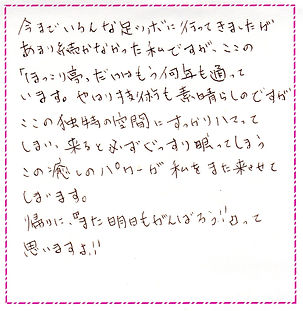 今までいろんな足ツボに行ってきましたが
あまり続かなかった私ですが、ここの
「ほっこり亭っだけはもう何年も通って
います。やはり技術も素晴らしのですが
ここの独特の空間にすっかりハマって
しまい、来ると必ずぐっすり眠ってしまう
この癒しのパワーが私をまた来させて
しまいます。
帰りに、"また明日もがんばろう!!"って
思いますよ!!